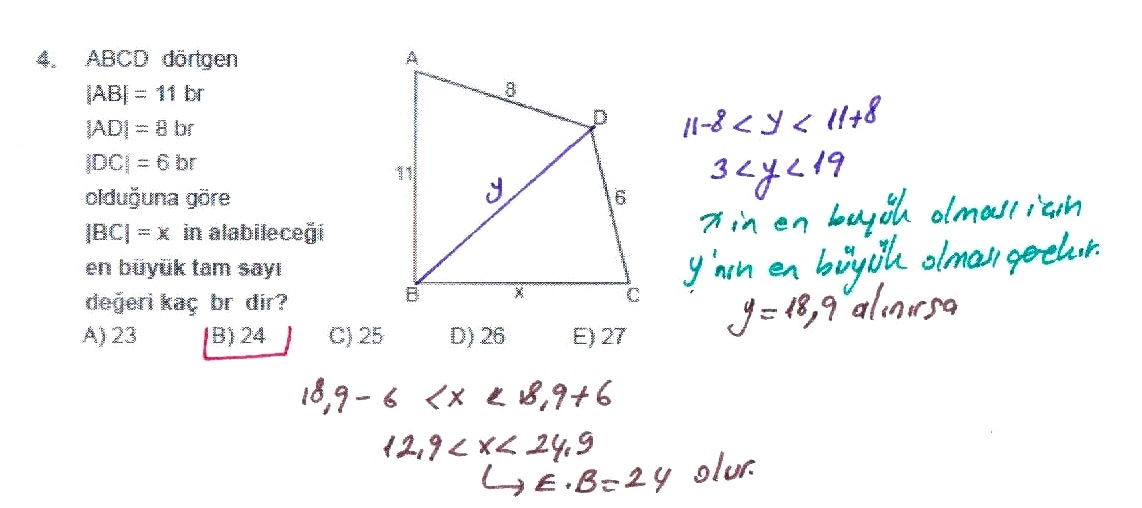 4. ABCD dörtgen
|AB| = 11 br
|AD| = 8 br
|DC| = 6 br
olduğuna göre
|BC| = x in alabileceği
en büyük tam sayı
değeri kaç br dir?
A) 23 B) 24 C) 25 D) 26 E) 27
A
8
D
11
y
6
B
x
C
11-8 < y < 11+8
3 < y < 19
x in en büyük olması için
y'nin en büyük olması gerekir.
y = 18,9 alınırsa
18,9 - 6 < x < 18,9 + 6
12,9 < x < 24,9
↳ E.B = 24 olur.